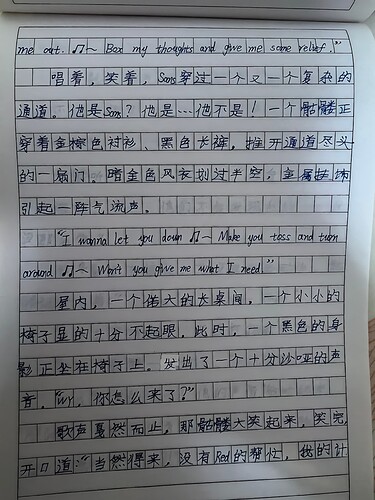 me out. ♫～ Box my thoughts and give me some relief."
唱着，笑着，Sans穿过一个又一个复杂的
通道。他是Sans？他是…他不是！一个骷髅正
穿着金棕色衬衫、黑色长裤，推开通道尽头
的一扇门。暗金色风衣划过半空，金属挂饰
引起一阵气流声。
"I wanna let you down ♫～ Make you toss and turn
around ♫～ Won't you give me what I need."
屋内，一个偌大的长桌间，一个小小的
椅子显的十分不起眼，此时，一个黑色的身
影正坐在椅子上，发出了一个十分沙哑的声
音，"你怎么来了？"
歌声戛然而止，那骷髅大笑起来，笑完，
开口道："当然得来，没有Red的帮忙，我的计